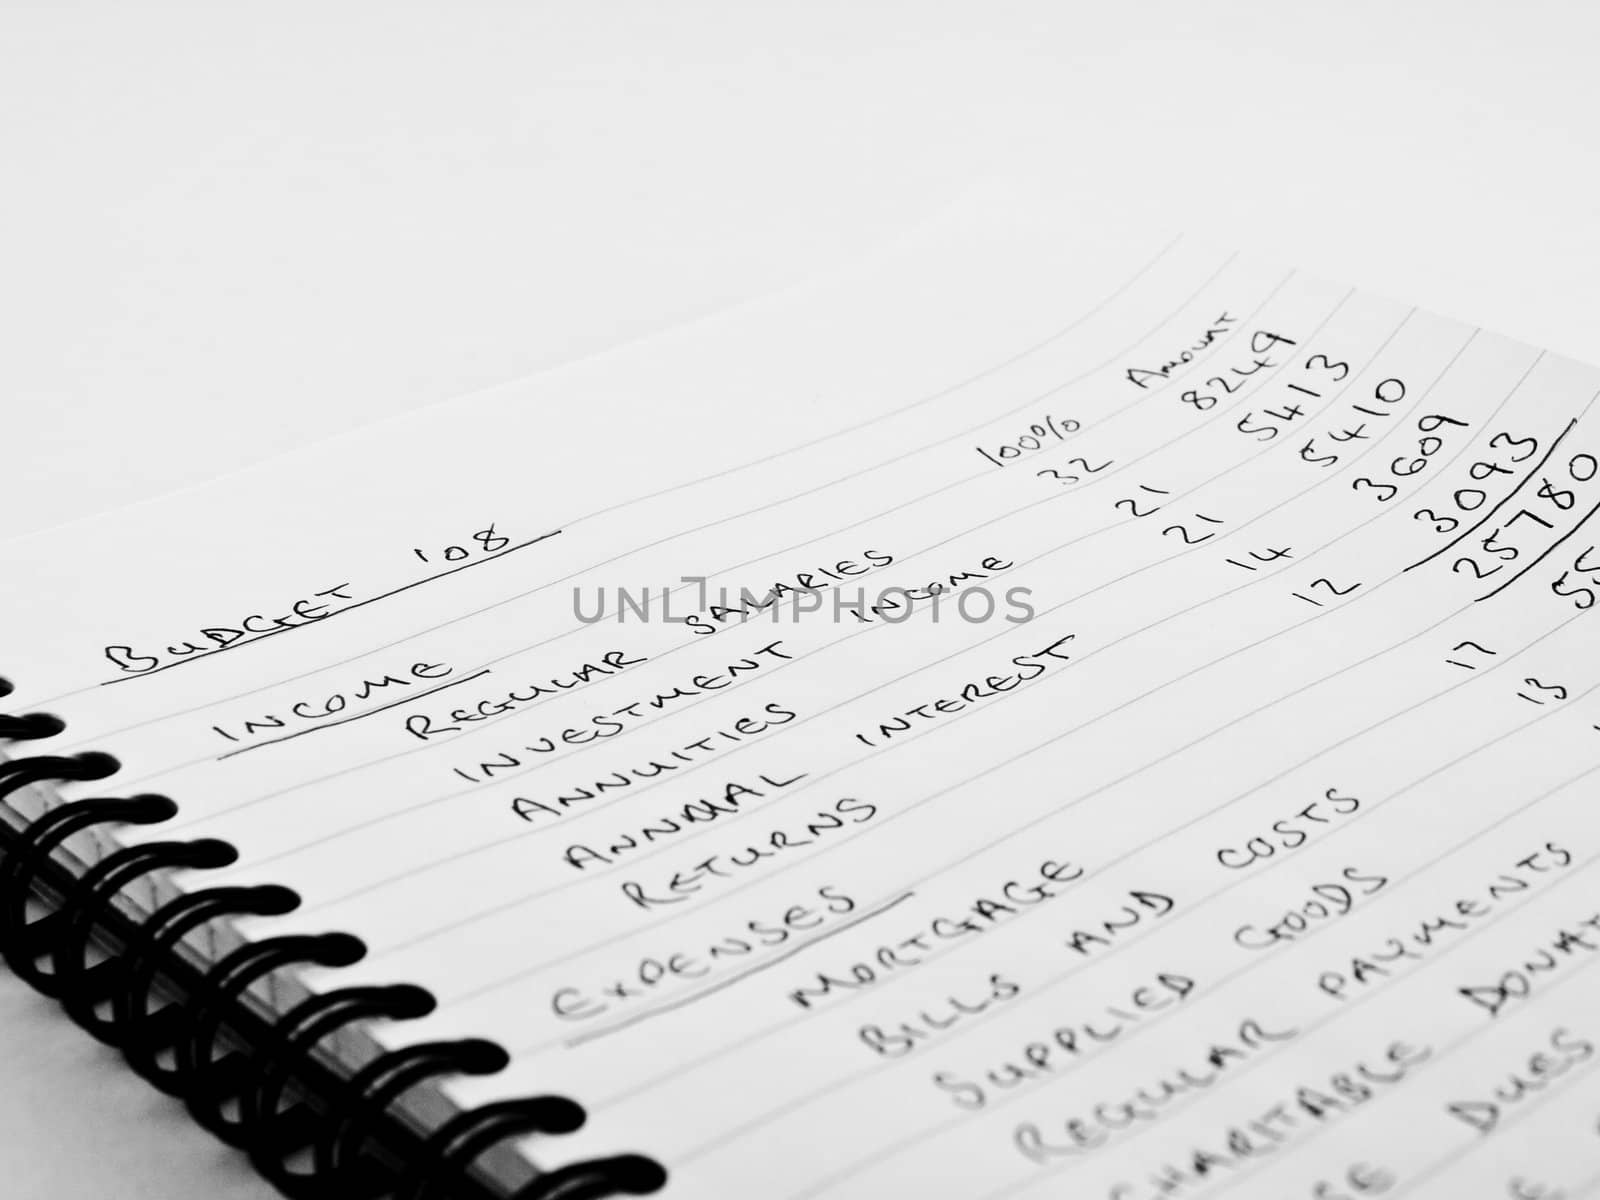 BUDGET '08
100% Amount
INCOME
REGULAR SALARIES 32 8249
INVESTMENT INCOME 21 5413
ANNUITIES 21 5410
ANNUAL INTEREST 14 3609
RETURNS 12 3093
25780
EXPENSES
MORTGAGE 17
BILLS AND COSTS 13
SUPPLIED GOODS
REGULAR PAYMENTS
CHARITABLE
DUES
UNLIMPHOTOS